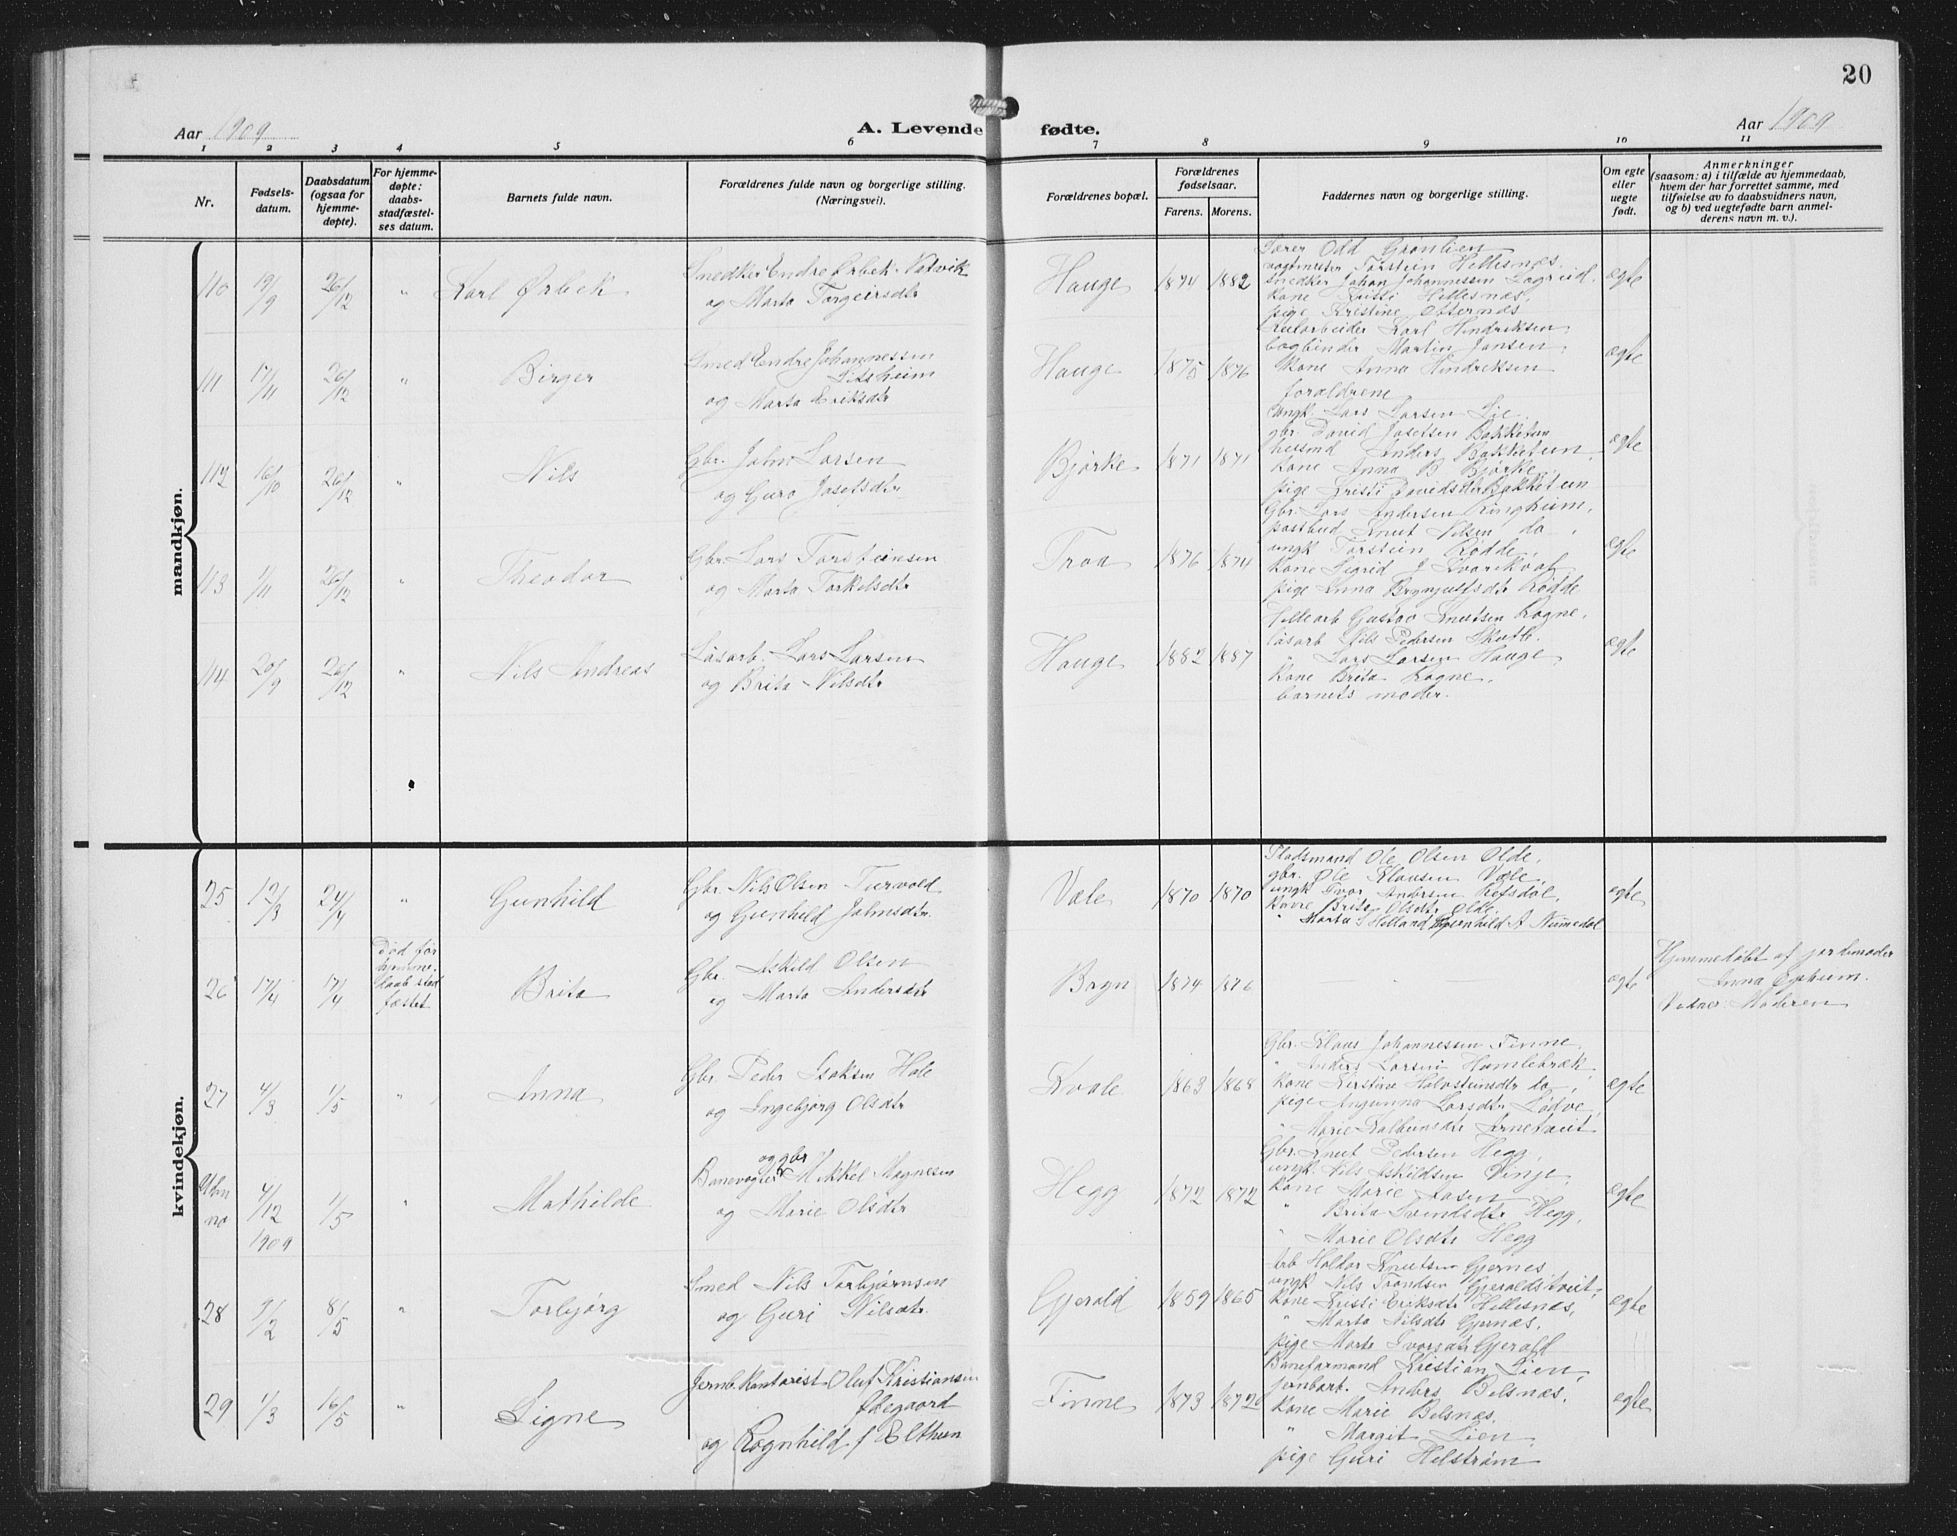 20
Aar 1909 A. Levende fødte. Aar 1909
1 2 3 4 5 6 7 8 9 10 11
Nr.
Fødsels-
datum.
Daabsdatum
(ogsaa for
hjemme-
døpte).
For hjemme-
døpte:
daabs-
stadfæstel-
ses datum.
Barnets fulde navn.
Forældrenes fulde navn og borgerlige stilling.
(Næringsvei).
Forældrenes bopæl.
Forældrenes
fødselsaar.
Farens. Morens.
Faddernes navn og borgerlige stilling.
Om egte
eller
uegte
født.
Anmerkninger
(saasom: a) i tilfælde av hjemmedaab,
hvem der har forrettet samme, med
tilføielse av to daabsvidners navn,
og b) ved uegtefødte barn anmel-
derens navn m. v.).
mandkjøn.
110 19/9 26/12 " Karl Ørbek
Snedker Endre Ørbek Natvik
og Marta Torgeirsdtr
Hauge 1874 1882
Lærer Odd Grønlien
vogtmester Torstein Hellesnæs
snedker Johan Johannessen Lagreid.
kone Kristi Hellesnæs,
pige Kristine Osternæs
egte
111 17/11 26/12 " Birger
Smed Endre Johannessen
og Marta Eriksdtr
Hauge 1875 1876
Karl Hindriksen,
bogbinder Martin Jansen,
kone Anna Hindriksen
forældrene
egte
112 16/10 26/12 " Nils
Gbr. John Larsen
og Guro Josefsdtr
Bjørke 1871 1871
ungk. Lars Larsen Lie,
gbr. David Josefsen Bakketun
Anders Bakketun,
kone Anna B Bjørke,
pige Kristi Davidsdtr Bakketun
egte
113 1/11 26/12 " Theodor
Gbr. Lars Torsteinsen
og Marta Torkelsdtr
Traa 1876 1874
Gbr. Lars Andersen Ringheim,
postbud Knut Nilsen do,
ungk Torstein Rødde,
kone Sigrid J
pige Anna Brynjulfsdtr Rødde
egte
114 20/9 26/12 " Nils Andreas
Løsarb. Lars Larsen
og Brita Nilsdtr
Hauge 1882 1887
Gustav Knutsen Rogne,
løsarb Nils Pedersen
" Lars Larsen Hauge,
kone Brita Rogne,
barnets moder.
egte
kvindekjøn.
25 12/3 24/4 " Gunhild
Gbr. Nils Olsen
og Gunhild Johnsdtr
Væle 1870 1870
Pladsmand Ole Olsen Olde,
gbr. Ole Klausen Væle,
ungk Ivar Andersen Refsdal,
kone Brita Olsdtr Olde,
" Marta S Helland, Gunhild A Numedal
egte
26 17/4 17/4
Død før
hjemme-
daab stad
fæstet
Brita
Gbr. Askild Olsen
og Marta Andersdtr
Bryn 1874 1876
egte
Hjemmedøbt af jordemoder
Anna Opheim.
Vidner: Moderen
27 4/3 1/5 " Anna
Gbr. Peder Isaksen Hole
og Ingebjørg Olsdtr
Kvale 1863 1868
Gbr. Klaus Johannessen Finne,
" Anders Larsen Humlebræk,
kone Kirstine Halvsteinsdtr do,
pige Angunna Larsdtr Lødve,
" Marie Kolbensdtr Arnetveit
egte
4/12 1909 1/5 " Mathilde
Banevogter og gbr Mikkel Magnesen
og Marie Olsdtr
Hegg 1872 1872
Gbr. Knut Pedersen Hegg,
ungk. Nils Askildsen Vinje,
kone Marie Aasen
" Brita Svendsdtr Hegg,
" Marie Olsdtr Hegg
egte
28 9/2 8/5 " Torbjørg
Smed Nils Torbjørnsen
og Guri Nilsdtr
Gjerald 1859 1865
Arb Haldor Knutsen Gjernes
ungk Nils Trondsen Gjeraldstveit,
kone Kristi Eriksdtr Hellesnæs,
" Marta Nilsdtr Gjernæs,
pige Marta Ivarsdtr Gjerald
egte
29 1/3 16/5 " Signe
Jernb. kontorist Oluf Kristiansen
Ødegaard
og Ragnhild f Elthun
Finne 1873 1872
Baneformand Kristian Lien,
jernbarb. Anders Belsnæs,
kone Marie Belsnæs,
" Margit Lien,
pige Guri Helstrøm
egte